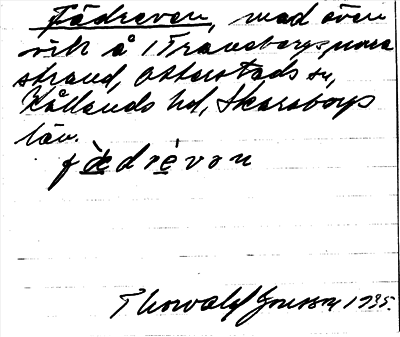 Fädreven, udd även
vik å Traneberg, norra
strand, Otterstads sn,
Kållands hd, Skaraborgs
län.
fädrévon
Thorvald Jonsson 1935.